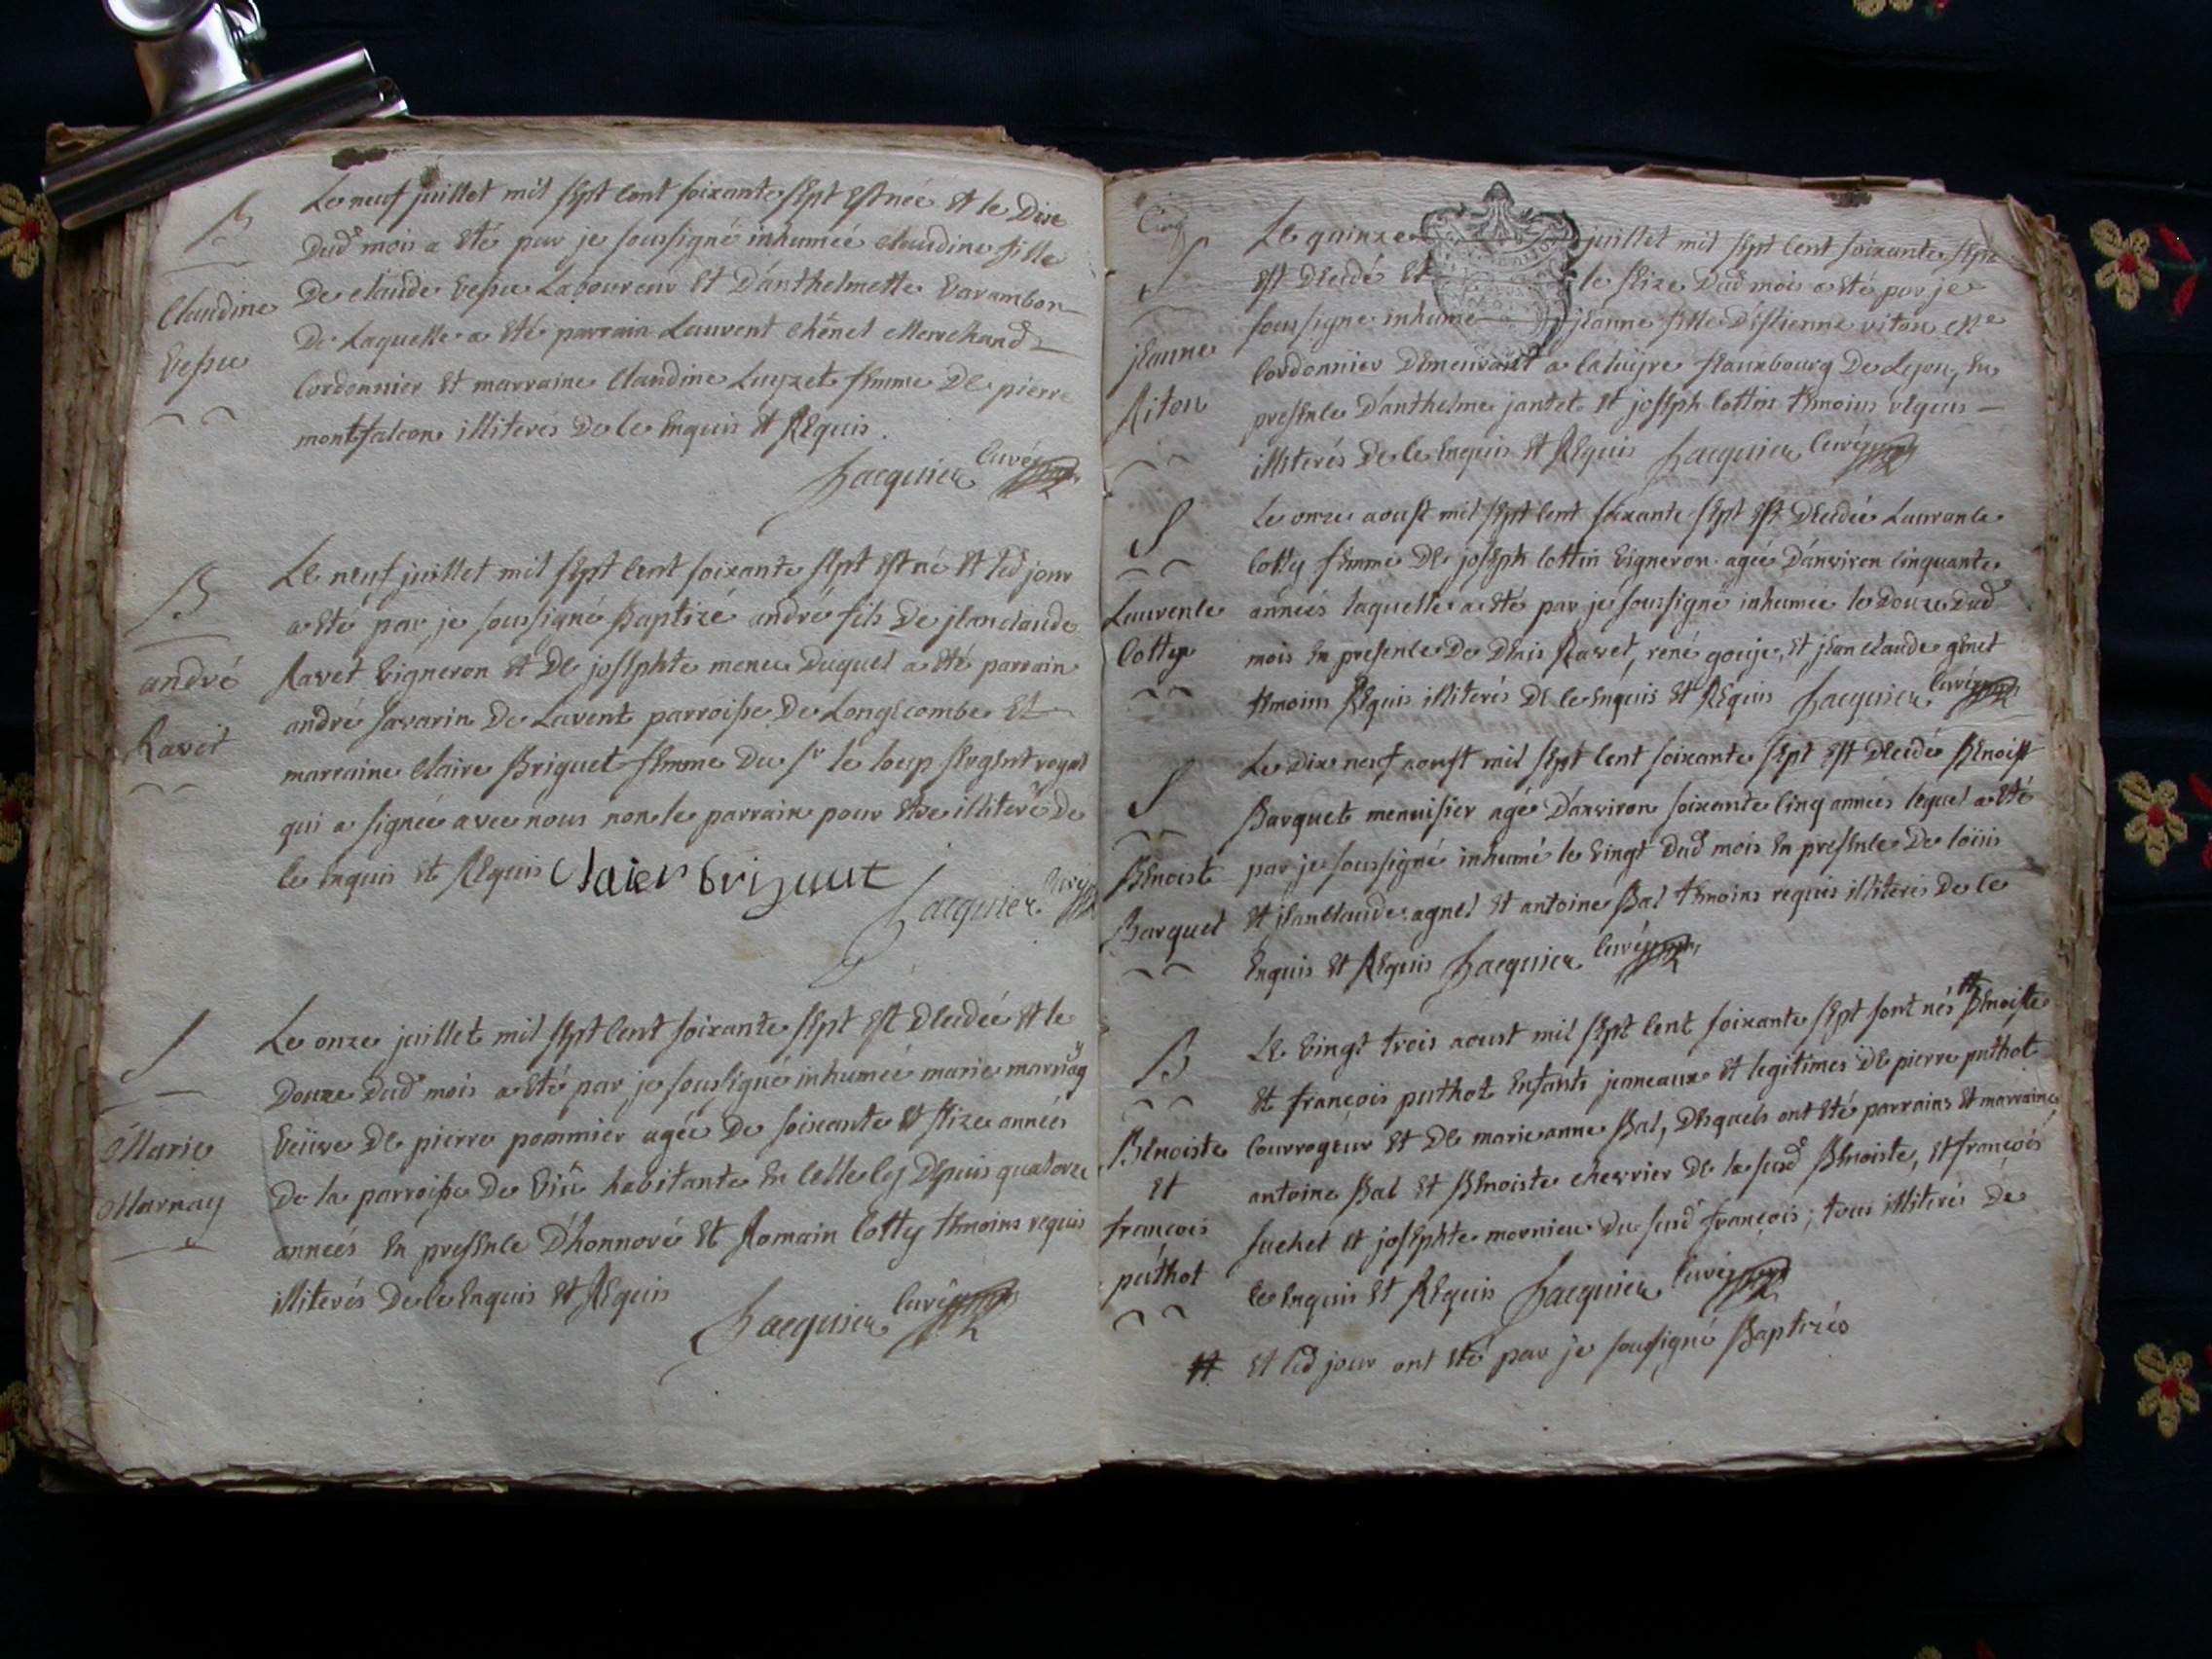 B
Claudine
Vepiu
Le neuf juillet mil sept cent soixante sept est née et le Dixe
Dud mois a eté par je soussigné inhumée claudine fille
De claude Vepiu Laboureur et D'anthelmette Varambon
De Laquelle a eté parrain Laurent chênel Marchand
Cordonnier et marraine Claudine Luyzet femme De pierre
montfalcon illiterés De ce Enquis et Requis.
Jacquier Curé
B
andré
Ravet
Le neuf juillet mil sept cent soixante sept est né et led jour
a eté par je soussigné Baptizé andré fils De jean claude
Ravet Vigneron et De josephte menu Duquel a eté parrain
andré savarin De Lavent parroisse De Longecombe Et
marraine Claire Briguet femme Du Sr le loup sergent royal
qui a signée avec nous non le parrain pour etre illiteré De
ce enquis et Requis Claier briguut
Jacquier Curé
S
Marie
Marnay
Le onze juillet mil sept cent soixante sept est Decedée et le
Douze Dud mois a eté par je soussigné inhumée marie marnay
Veüve De pierre pommier agée De soixante et seize années
De la parroisse De habitante En celle cy Depuis quatorze
années En presence D'honnoré et Romain Cotty temoins requis
illiterés De ce Enquis et Requis
Jacquier Curé
Cinq
S
jeanne
Riton
Le quinze juillet mil sept cent soixante sept
est Decedé et le seize Dud mois a eté par je
soussigné inhumé jeanne fille D'estienne riton Me
Cordonnier Demeurant a fauxbourg De Lyon, En
presence D'anthelme jantet et joseph Cottin temoins requis
illiterés De ce Enquis et Requis Jacquier Curé
S
Laurence
Cotty
Le onze aoust mil sept cent soixante sept est Decedée Laurance
Cotty femme De joseph Cottin Vigneron agée D'anviron cinquante
années laquelle a eté par je soussigné inhumée le Douze Dud
mois En presence De Denis Ravet, rené gouje, et jean claude genet
temoins Requis illiterés De ce Enquis et Requis Jacquier Curé
S
Benoist
Barquet
Le Dix neuf aoust mil sept cent soixante sept est Decedé Benoist
Barquet menuisier agé D'anviron soixante cinq années lequel a eté
par je soussigné inhumé le Vingt Dud mois En presence De loüis
et jean claude agnel et antoine Bal temoins requis illiterés De ce
Enquis et Requis Jacquier Curé
B
Benoiste
et
francois
puthot
Le Vingt trois aoust mil sept cent soixante sept sont nés # Benoiste
et francois puthot Enfants jemeaux et legitimes De pierre puthot
Courrogeur et De marie anne Bal, Desquels ont eté parrains et marraines
antoine Bal et Benoiste chevrier De la susd Benoiste, et francois
suchet et josephte mornieu Du susd francois; tous illiterés De
ce Enquis et Requis Jacquier Curé
# et led jour ont eté par je soussigné Baptizés